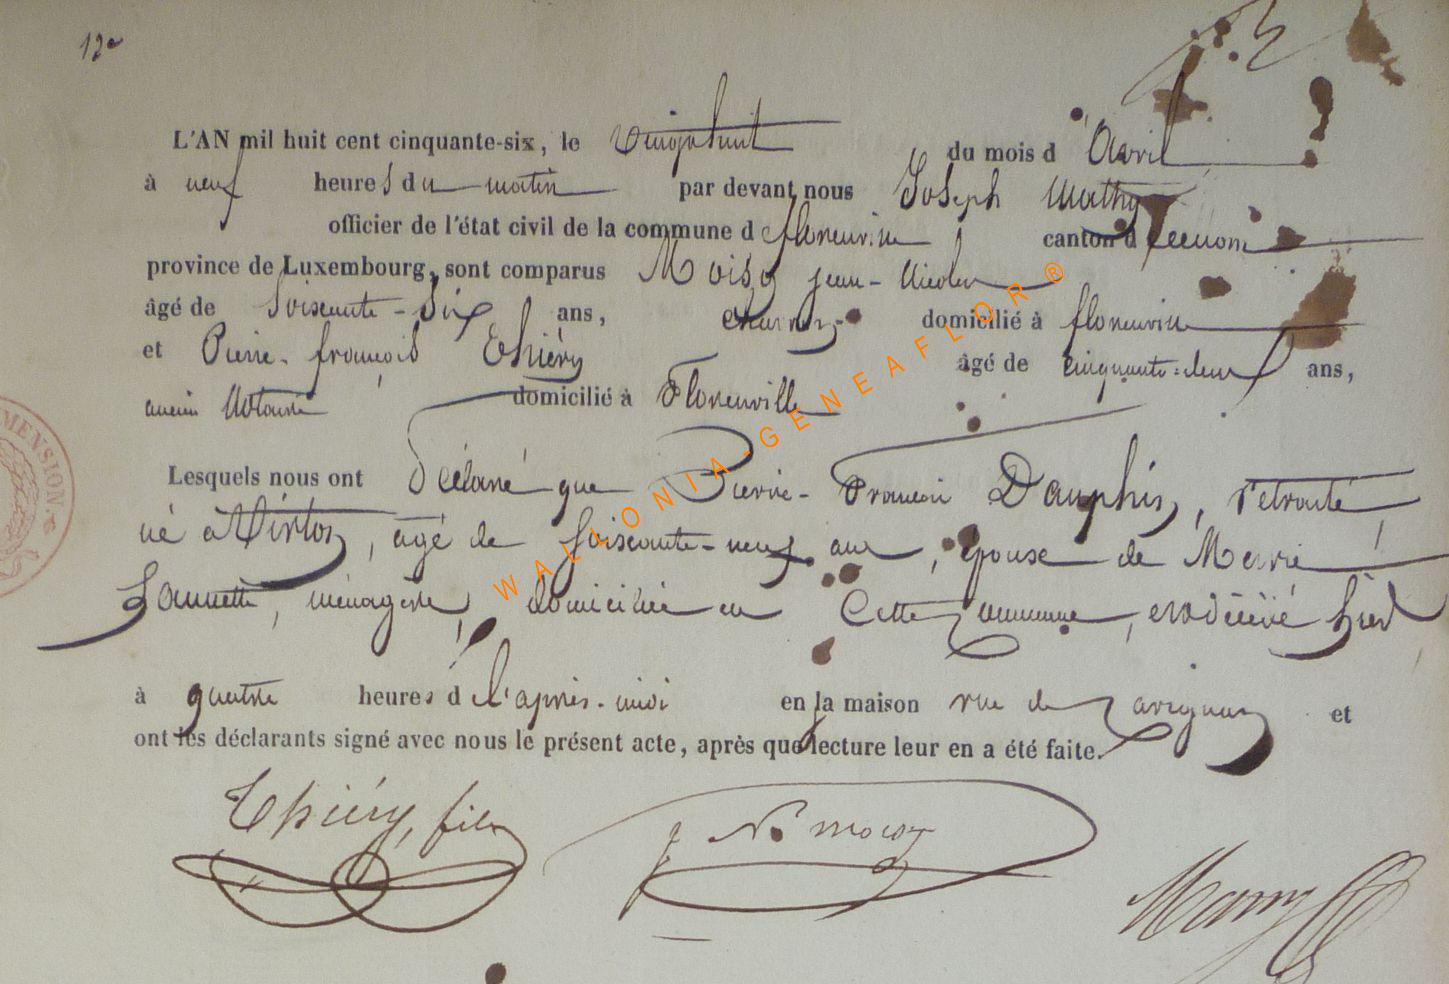 12e
L'AN mil huit cent cinquante-six, le vingt huit du mois d'Avril
à neuf heures du matin par devant nous Joseph Mathy
officier de l'état civil de la commune d florenville canton d
province de Luxembourg, sont comparus jean-Nicolas
âgé de soissante-six ans, domicilié à florenville
et Pierre-françois Thiéry âgé de cinquante-deux ans,
ancien Notaire domicilié à Florenville
Lesquels nous ont déclaré que Pierre-François Dauphin, retraité,
né à Virton, âgé de soissante-neuf ans, époux de Marie
Lannette, ménagère, domiciliée en cette commune, est décédé hier
à quatre heures d l'après-midi en la maison rue de et
ont les déclarants signé avec nous le présent acte, après que lecture leur en a été faite.
Thiéry, fils
MENSION.
WALLONIA-GENEAFLOR ®